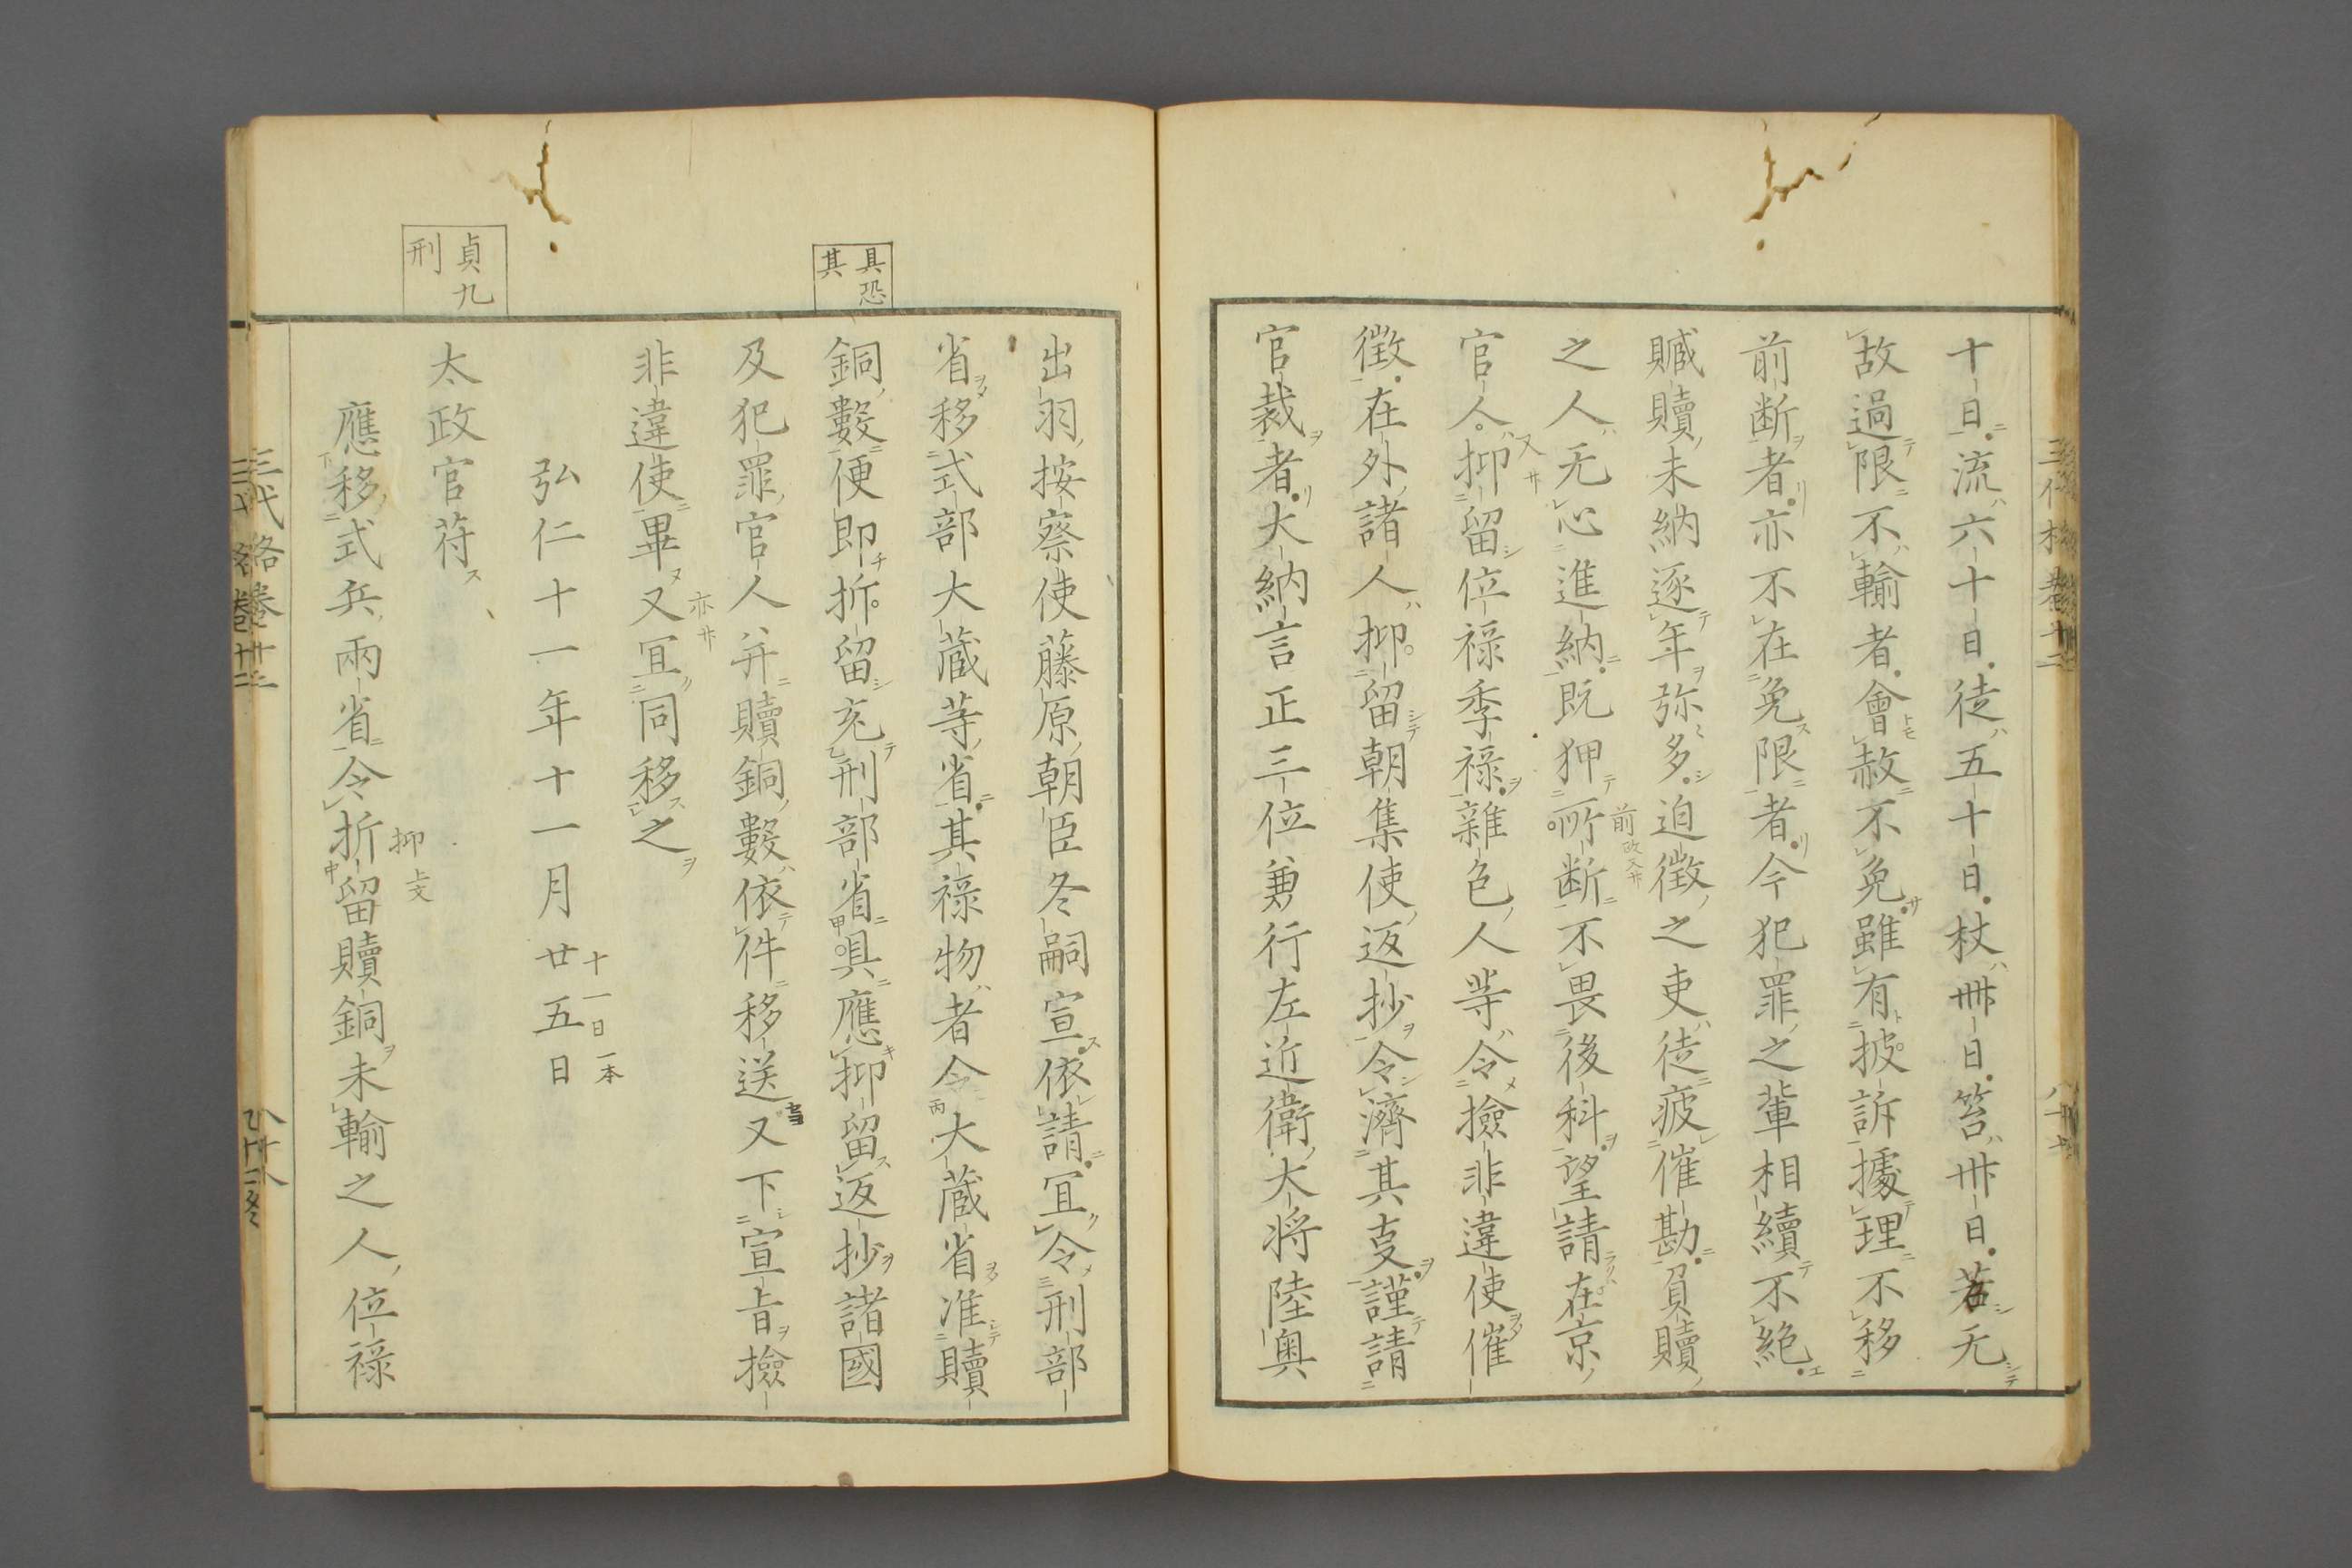 十日流六十日徒五十日杖卌日笞卅日若无
故過限不輸者會赦不免雖有披訴據理不移
前断者亦不在免限者今犯罪之輩相續不絶
贓贖未納逐年弥多迫徴之吏徒疲催勘負贖
之人无心進納既狎所断不畏後科望請在京
前
官人抑留位禄季禄雜色人等令撿非違使催
徴在外諸人抑留朝集使返抄令濟其事謹請
官裁者大納言正三位兼行左近衛大将陸奥
具恐
其
出羽按察使藤原朝臣冬嗣宣依請宜令刑部
省移式部大蔵等省其禄物者令大蔵省准贖
銅數便即折留充刑部省具應抑留返抄諸國
及犯罪官人并贖銅數依件移送又下宣旨撿
非違使畢又宜同移之
弘仁十一年十一月廿五日
十一日一本
貞九
刑
太政官苻
應移式兵兩省令折留贖銅未輸之人位禄
抑上文
三代格卷十二